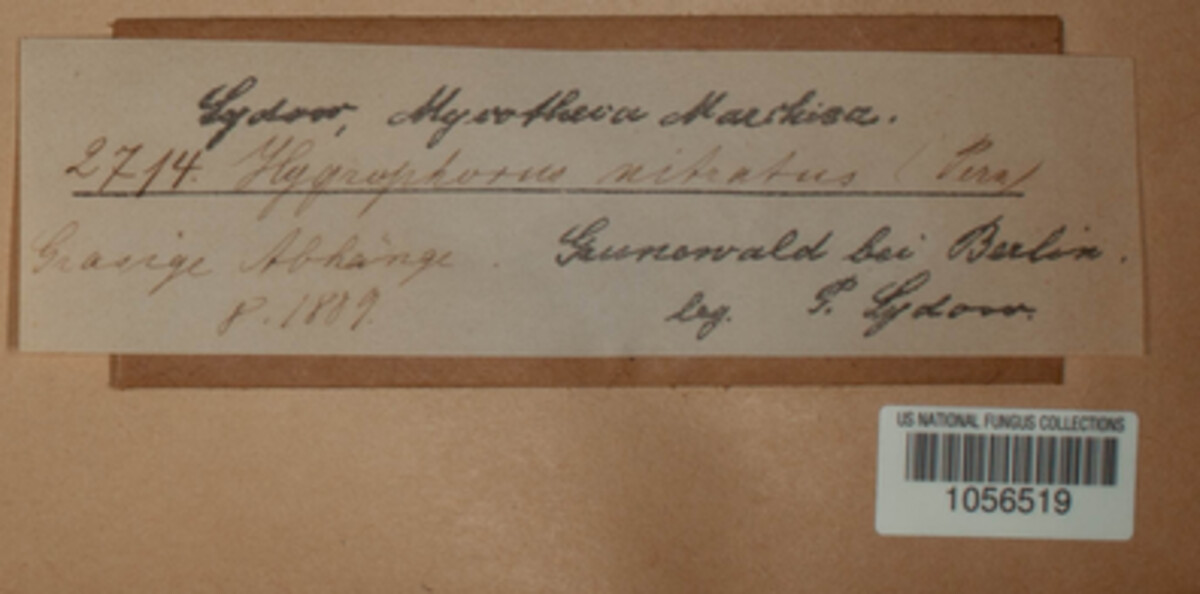 Sydow, Mycotheca Marchica.
2714. Hygrophorus nitratus (Pers)
Grasige Abhänge. Grunewald bei Berlin.
8. 1889. leg. P. Sydow.
US NATIONAL FUNGUS COLLECTIONS
1056519